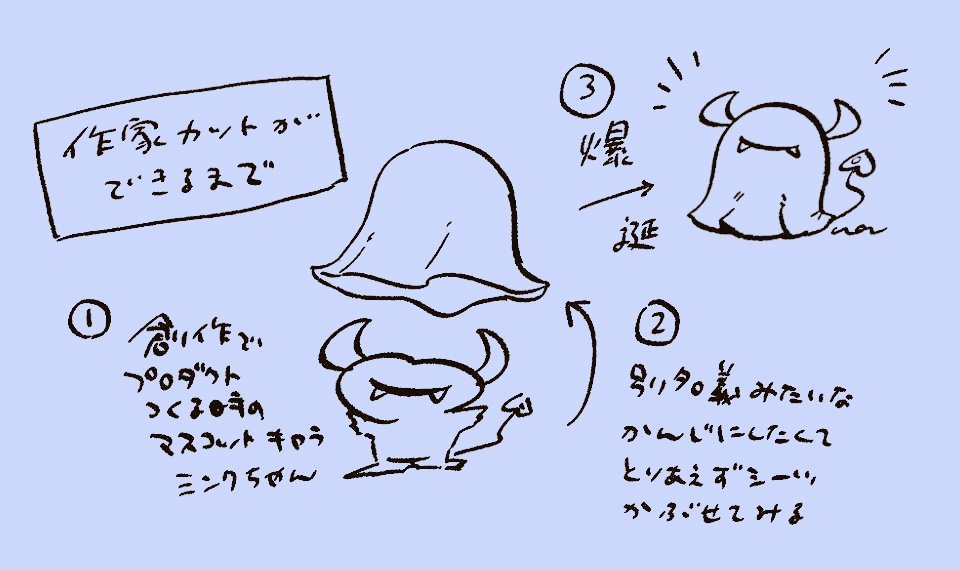 作家カットが
できるまで
①
創作で
プロダクト
つくる時の
マスコットキャラ
ミンクちゃん
②
別タロ義みたいな
かんじにしたくて
とりあえずシーツ
かぶせてみる
③
爆
誕